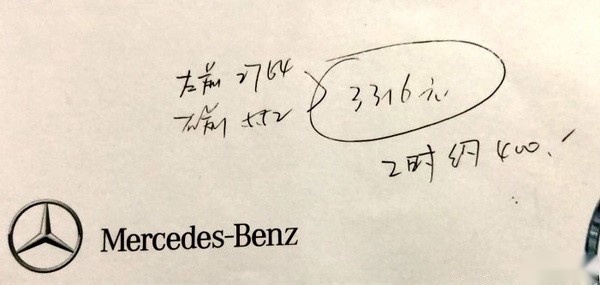 左前 2764
右前 552
3316元
工时约400.
Mercedes-Benz